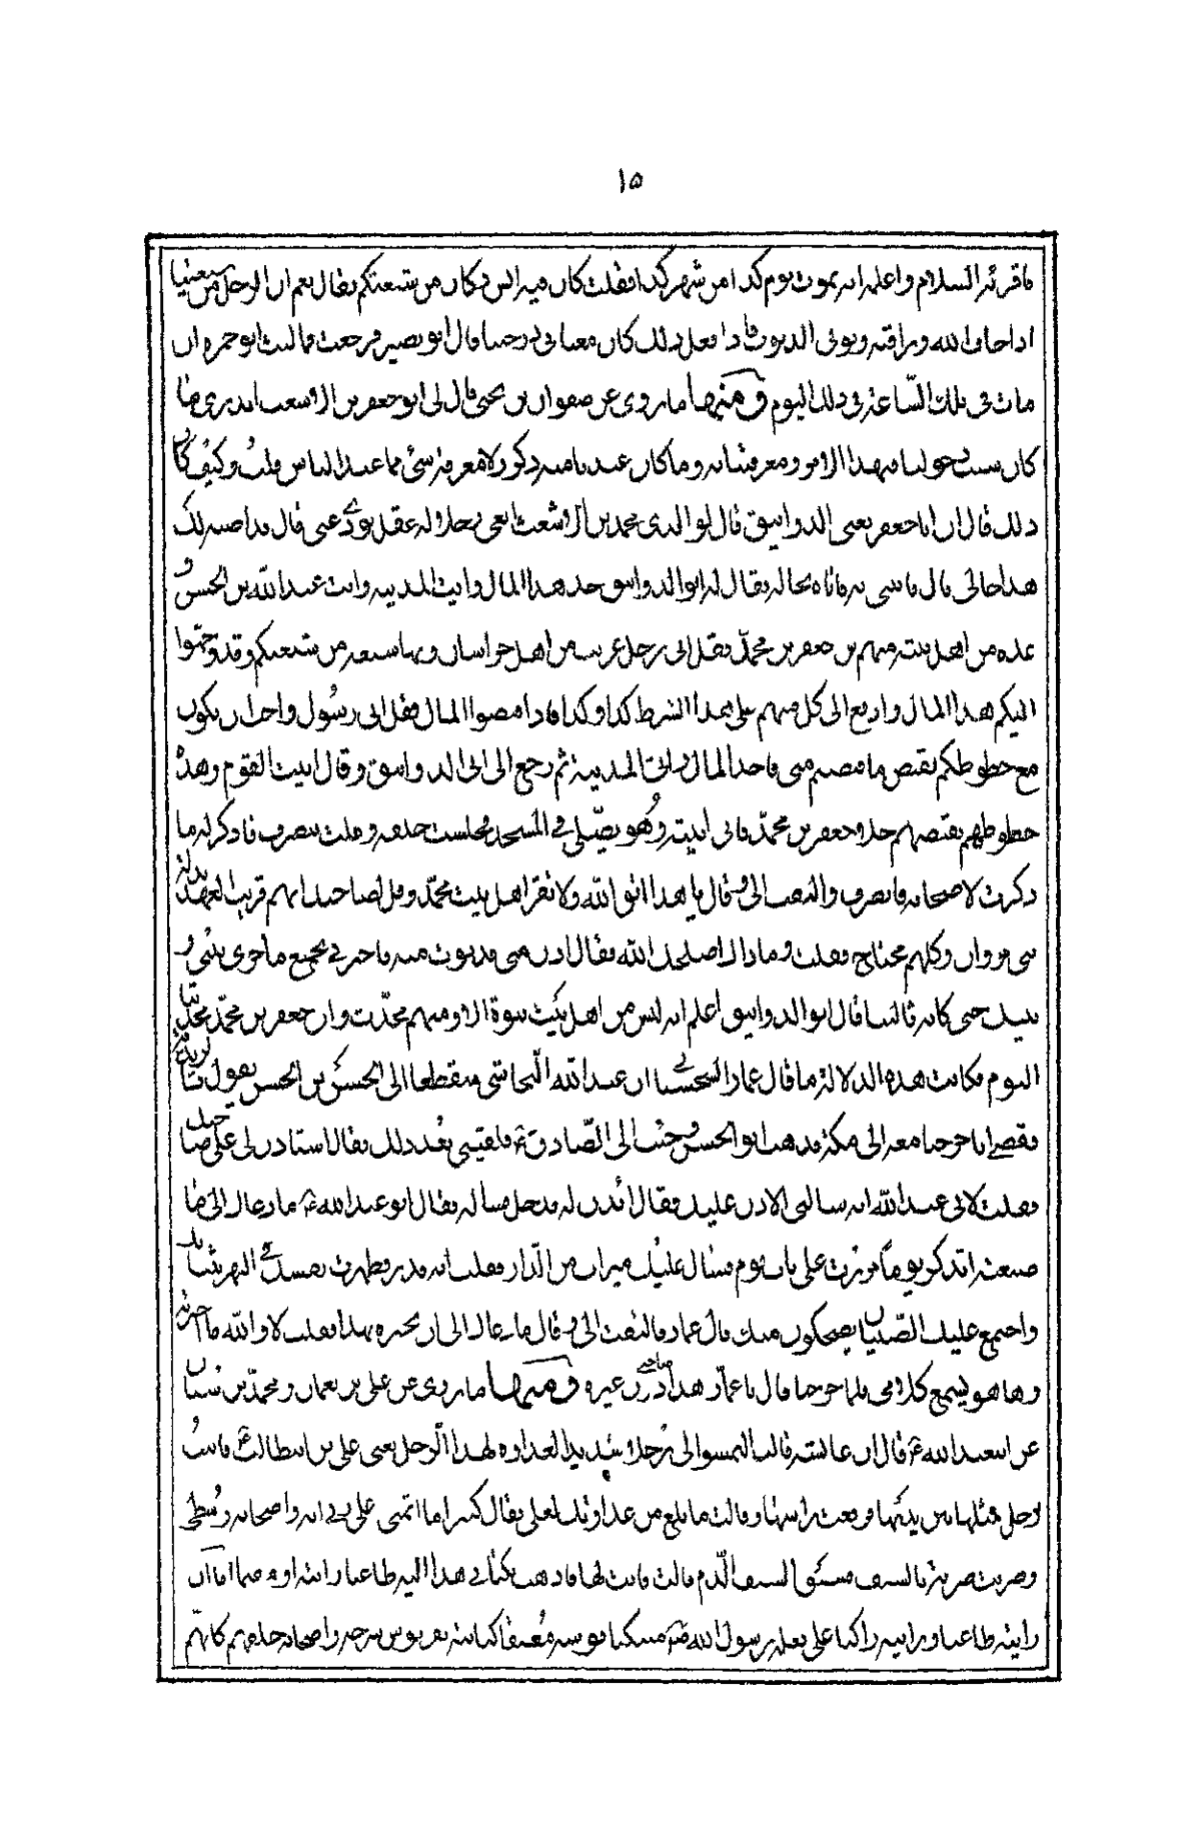 ١٥
فاقرئه السلام واعلمه انه يموت يوم كذا من شهر كذا فقلت كان فيه انس وكان من شيعتكم فقال نعم ان الرجل من شيعتنا
اذا خاف الله وراقبه وتوقى الذنوب فاذا فعل ذلك كان معنا في درجتنا قال ابو بصير فرجعت فما لبث ابو حمزه ان
مات في تلك الساعة في ذلك اليوم ومنها ما روى عن صفوان بن يحيى قال لى ابو جعفر بن الاشعث اتدرى ما
كان سبب دخولنا فى هذا الامر ومعرفتنا به وما كان عندنا منه ذكر ولا معرفة شئ مما عند الناس قلت وكيف كان
ذلك قال ان ابا جعفر يعنى الدوانيق قال لوالدى محمد بن الاشعث ابغى رجلا له عقل يؤدى عنى قال قد اصبته لك
هذا خالى قال فاتنى به فاتاه بخاله فقال له ابو الدوانيق خذ هذا المال وايت المدينه وايت عبد الله بن الحسن و
عده من اهل بيته منهم بن جعفر بن محمد فقل انى رجل غريب من اهل خراسان وبها شيعه من شيعتكم وقد وجهوا
اليكم هذا المال وادفع الى كل منهم على هذا الشرط كذا وكذا فاذا قبضوا المال فقل انى رسول واحب ان يكون
مع خطوطكم بقبض ما قبضتم منى فاخذ المال واتى المدينة ثم رجع الى ابى الدوانيق وقال اتيت القوم وهذه
خطوطهم بقبضهم خلا جعفر بن محمد فانى اتيته وهو يصلى في المسجد فجلست خلفه وقلت ينصرف فاذكر له ما
ذكرت لاصحابه فانصرف والتفت الى وقال يا هذا اتق الله ولا تغر اهل بيت محمد وقل لصاحبك انهم قريب العهد بدولة
بنى مروان وكلهم محتاج فقلت وما ذاك اصلحك الله فقال ادن منى فدنوت منه فاخبرنى بجميع ما جرى بينى و
بينك حتى كانه ثالثنا قال ابو الدوانيق اعلم انه ليس من اهل بيت نبوة الا ومنهم محدث وان جعفر بن محمد محدثنا
اليوم فكانت هذه الدلالة ما قال عمار السجستانى ان عبد الله النجاشى منقطعا الى الحسن بن الحسن يقول بالزيدية
فقضى انا خرجنا معه الى مكة فذهب ابو الحسن وجئت الى الصادق فلقينى بعد ذلك فقال استاذن لى على صاحبك
فقلت لابى عبد الله انه سالنى الاذن عليك فقال ائذن له فدخل فساله فقال ابو عبد الله ما دعاك الى ما
صنعت اتذكر يوما مررت على باب قوم فسال عليك ميزاب من الدار فقلت انه قذر فطرحت نفسك فى النهر بثيابك
واجتمع عليك الصبيان يضحكون منك قال عمار فالتفت الى وقال ما دعاك الى ان تخبره بهذا فقلت لا والله ما اخبرته
وها هو يسمع كلامى فلما خرجنا قال يا عمار هذا صاحبى دون غيره ومنها ما روى عن على بن نعمان ومحمد بن سنان
عن ابى عبد الله قال ان عائشه قالت التمسوا لى رجلا شديد العداوه لهذا الرجل يعنى على بن ابيطالب فاتيت
برجل فمثل بين يديها فرفعت راسها وقالت ما بلغ من عداوتك لعلى فقال كثيرا ما اتمنى على ربى انه واصحابه وسطى
وضربت ضربة بالسيف فسبق السيف الدم قالت فانت لها فاذهب بكتابى هذا اليه ظاعنا رايته او مقيما اما ان
رايته ظاعنا ورايته راكبا على بغله رسول الله متنكبا قوسه معلقا كنانته بقربوس سرجه واصحابه خلفهم كانهم